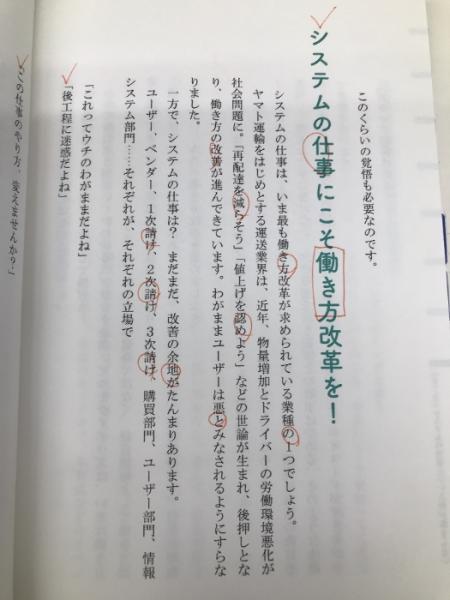 このくらいの覚悟も必要なのです。
システムの仕事にこそ働き方改革を！
システムの仕事は、いま最も働き方改革が求められている業種の1つでしょう。
ヤマト運輸をはじめとする運送業界は、近年、物量増加とドライバーの労働環境悪化が
社会問題に。「再配達を減らそう」「値上げを認めよう」などの世論が生まれ、後押しとな
り、働き方の改善が進んできています。わがままユーザーは悪とみなされるようにすらな
りました。
一方で、システムの仕事は？　まだまだ、改善の余地がたんまりあります。
ユーザー、ベンダー、1次請け、2次請け、3次請け、購買部門、ユーザー部門、情報
システム部門……それぞれが、それぞれの立場で
「これってウチのわがままだよね」
「後工程に迷惑だよね」
「この仕事のやり方、変えませんか？」